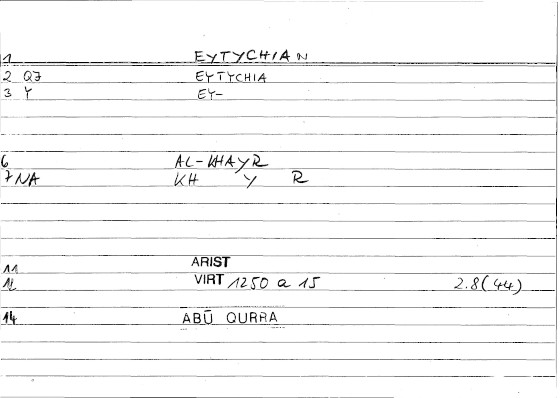 1 EYTYCHIAN
2 Q7 EYTYCHIA
3 Y EY-
6 AL-KHAYR
7 NA KH Y R
11 ARIST
12 VIRT 1250 a 15 2.8(44)
14 ABŪ QURRA